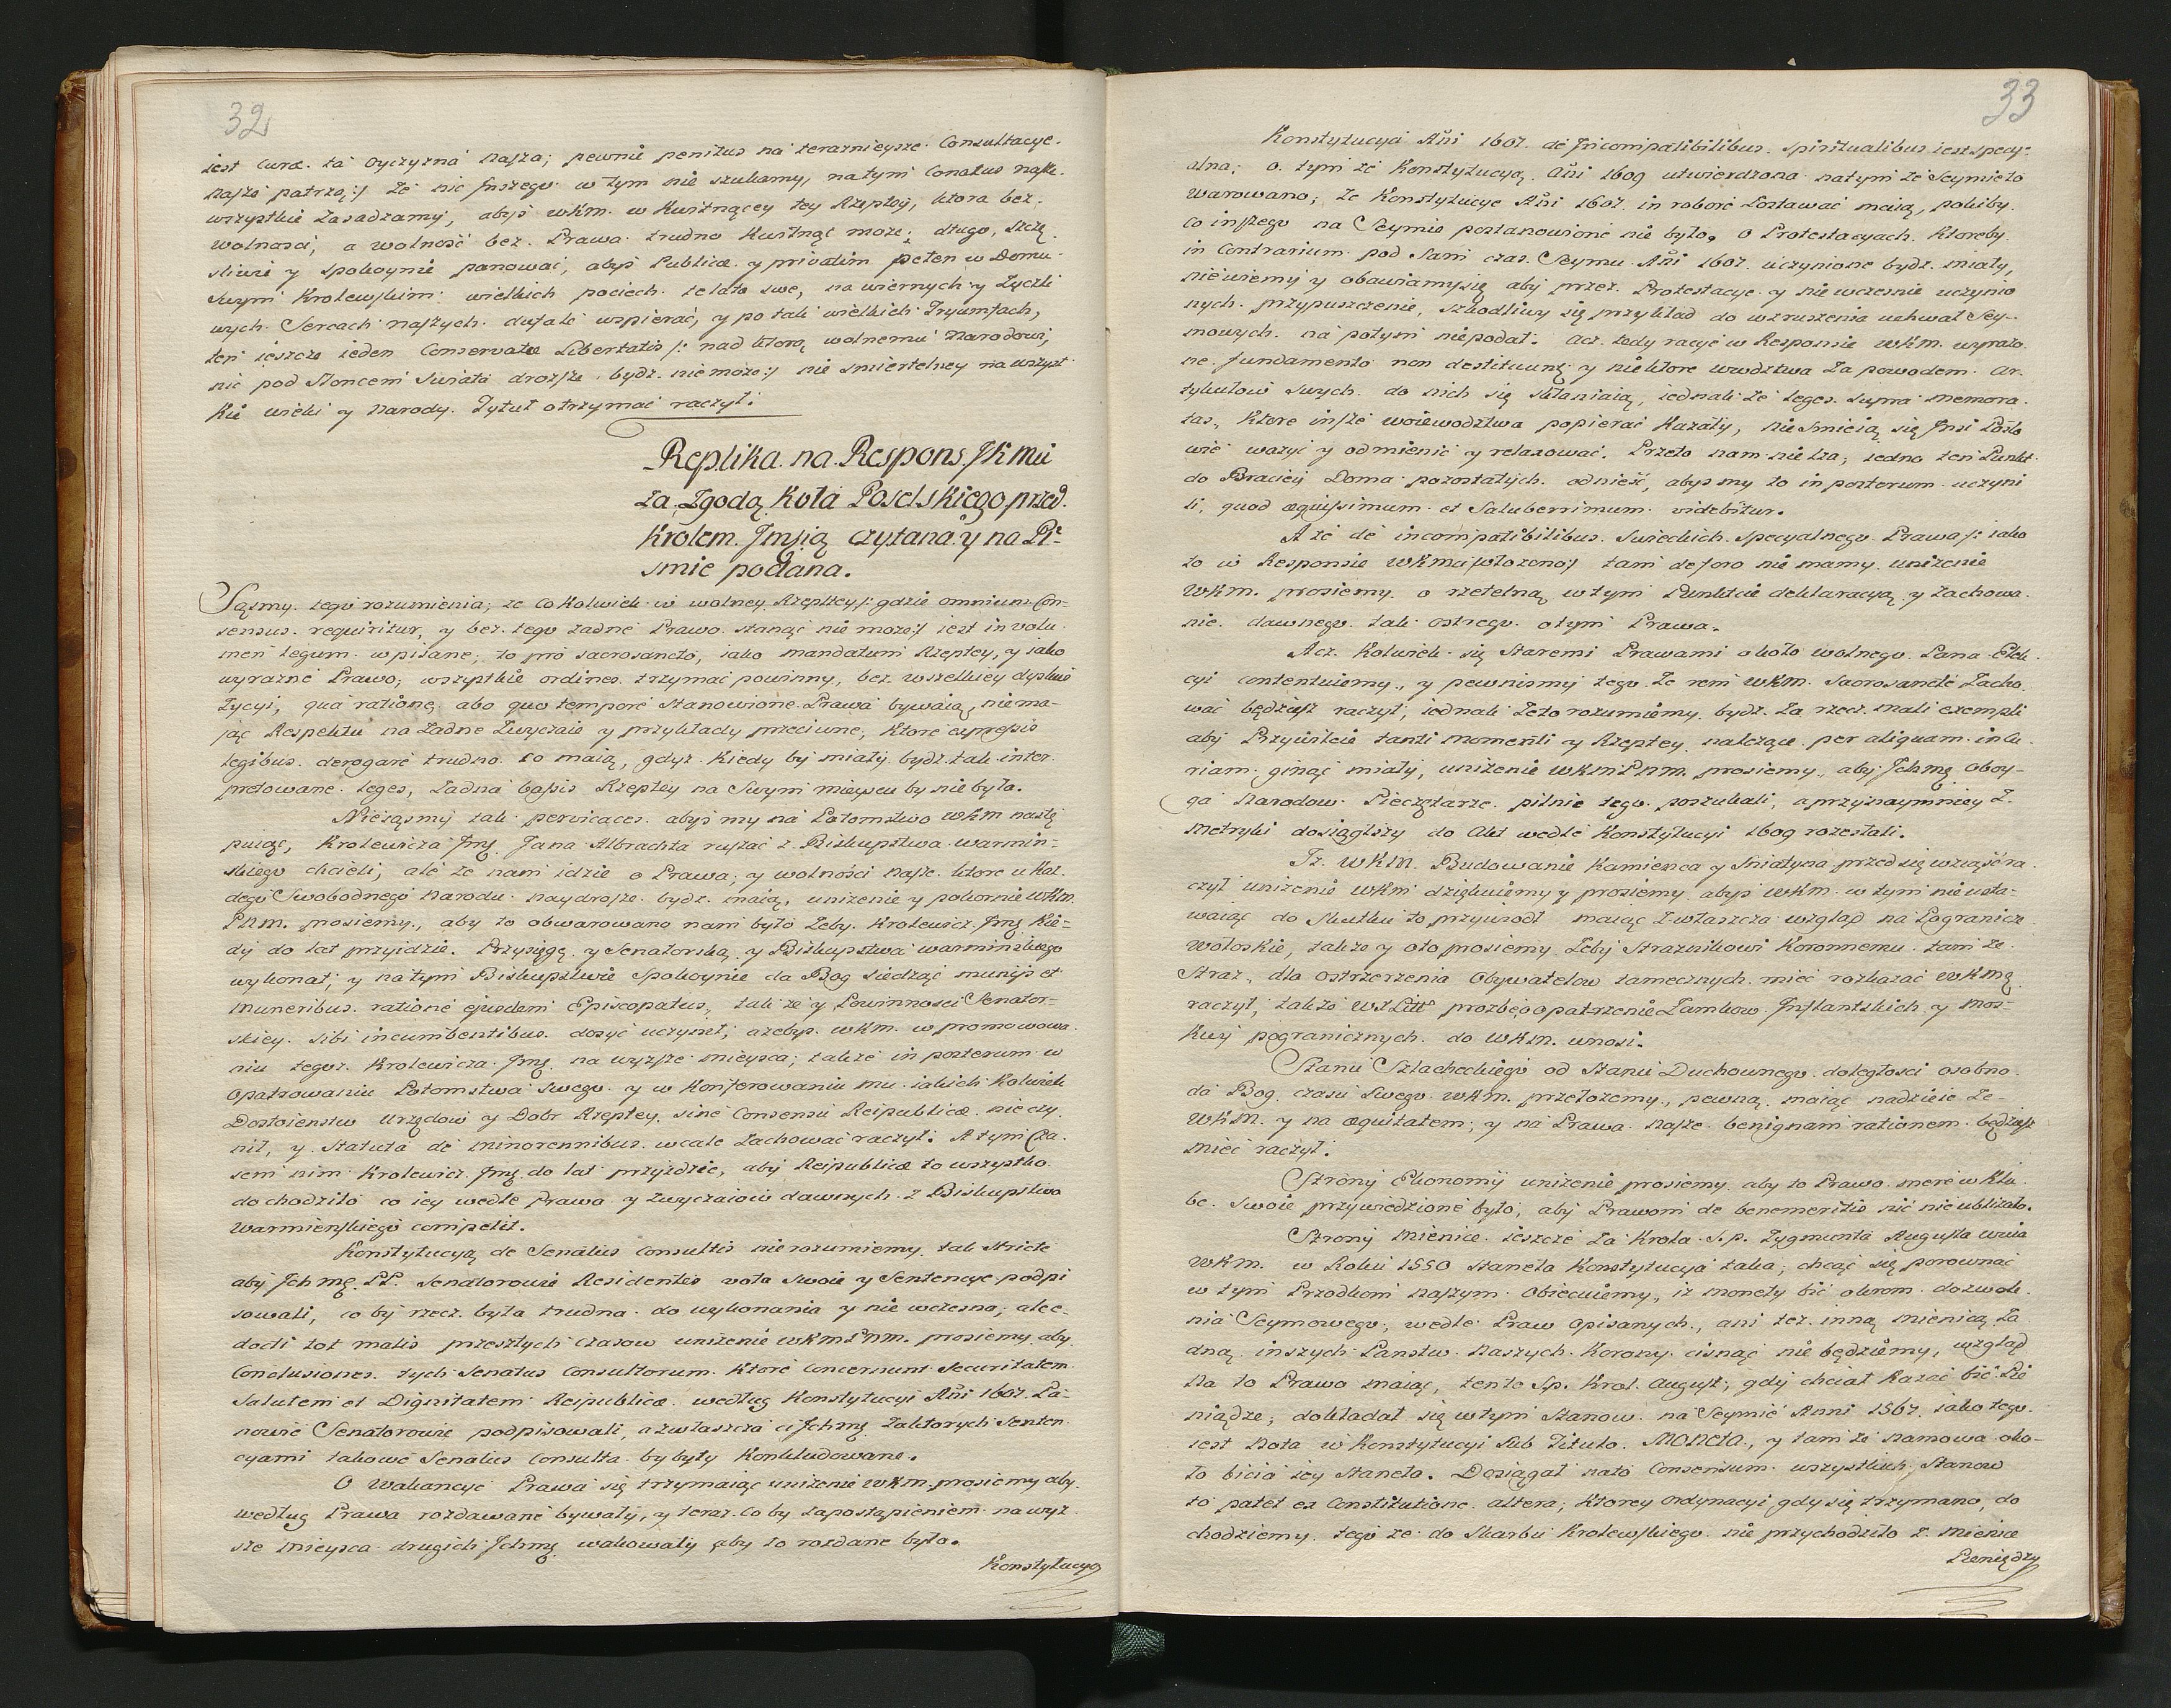 32
iest curæ. ta Oyczyzna nasza; pewnie penitus na teraznieysze Consultacye.
nasze patrzą:/ że nic Inszego w tym nie szukamy, na tym Conatus nasze
wszystkie zasadzamy, abyś WKM. w Kwitnącey tey Rzeptey, ktora bez.
wolnosci, a wolność bez. Prawa trudno Kwitnąć może; długo, szczę
sliwie y spokoynie panował, abyś Publicæ y privatim peten w Domu
Swym Krolewskim wielkich pociech. te lata swe, na wiernych y Zyczli
wych Sercach naszych. dufale wspierać, y po tak wielkich Tryumfach,
ten ieszcze ieden Conservatæ Libertatis /: nad ktorą wolnemu Narodowi,
nic pod Słoncem Swiata droższe bydz. nie może:/ nie smiertelney na wszyst
kie wieki y Narody. Tytuł otrzymać raczył.
Replika na Respons JKMci
za Zgodą Koła Poselskiego przed.
Krolem Jmsią czytana y na Pi-
smie podana.
Sąsmy tego rozumienia; że Cokolwiek w wolney Rzeptey /: gdzie omnium Con-
sensus. requiritur, y bez. tego żadne Prawo stanąć nie może:/ iest in volu
men legum wpisane; to pro sacrosancto, iako mandatum Rzeptey, y iako
wyrazne Prawo; wszystkie ordines trzymać powinny, bez wszelkiey dysku
zycyi, qua ratione abo quo tempore Stanowione Prawa bywaią, nie ma-
jąc Respektu na Zadne Zwyczaie y przykłady przeciwne, Ktore expressis
legibus. derogare trudno co maią, gdyz Kiedy by miały bydz tak inter.
pretowane leges, Zadna basis Rzeptey na Swym mieyscu by nie była.
Niesąsmy tak pervicaces. abyś my na Potomstwo WKM nastę
puiąc, Krolewicza Jmę Jana Albrachta ruszać z Biskupstwa warmin-
skiego chcieli, ale że nam idzie o Prawa, y wolności nasze ktore u Każ.
dego Swobodnego Narodu naydroższe bydz. maią, unizenie y pokornie WKM.
PNM. prosiemy, aby to obwarowano nam było żeby. Krolewicz Jmę Kie-
dy do lat przyidzie. Przysięgę y Senatorską y Biskupstwa warminskiego
wykonał; y na tym Biskupstwie spokoynie da Bog siedząc munijs et
muneribus. ratione ejusdem Episcopatus, tak że y Powinnosci Senator-
skiey. sibi incumbentibus dosyć uczynił; a żebyś WKM. w promowowa
niu tegoż. Krolewicza Jmę na wyższe mieysca; także in posterum w
opatrowaniu Potomstwa Swego y w Konferowaniu mu iakich Kolwiek
Dostoienstw Urzędow y Dobr Rzeptey. sine Consensu Reipublicæ nie czy
nił, y Statuta de minorennibus wcale zachować raczył. A tym Cza.
sem nim Krolewicz Jmę do lat przyidzie, aby Reipublicæ to wszystko
dochodziło co iey wedle Prawa y zwyczaiow dawnych z Biskupstwa
Warmienskiego competit.
Konstytucyą de Senatus consultis nie rozumiemy tak stricte
aby Ichmę PP. Senatorowie Residentes vota Swoie y Sentencye podpi
sowali, co by rzecz. była trudna do wykonania y nie wczesna; ale e-
docti tot malis przeszłych czasow unizenie WKMPNM. prosiemy aby
Conclusiones. tych Senatus Consultorum Ktore concernunt Securitatem
Salutem et Dignitatem Reipublicæ według Konstytucyi Ańi 1607. Pa-
nowie Senatorowie podpisowali, a zwłaszcza ci Ichmę za ktorych Senten
cyami takowe Senatus Consulta byby były Konkludowane.
O Wakancye Prawa się trzymaiąc unizenie WKM. prosiemy aby
według Prawa rozdawane bywały, y teraz. co by za postąpieniem na wyż
sze mieysca drugich Ichmę wakowały aby to rozdane było.
Konstytucya
33
Konstytucya Ańi 1607. de Incompatibilibus. spiritualibus iest specy-
alna; o tym że Konstytucyą Ańi 1609 utwierdzona na tym że Seymie to
warowano, że Konstytucye Ańi 1607. in robore Zostawać maią, pokiby
Co inszego na Seymie postanowione nie było, o Protestacyach Ktoreby
in Contrarium pod sam czas Seymu Ańi 1607. uczynione bydz. miały,
nie wiemy y obawiamy się aby przez. Protestacye y nie wczesnie uczynio
nych przypuszczenie, szkodliwy się przykład do wzruszenia uchwał Sey-
mowych na potym nie podał. Acz. tedy racye w Responsie WKM. wyrażo
ne fundamento non destituunt y niektore wwdztwa za powodem Ar.
tykułow swych. do nich się skłaniaią, iednak że leges. supra memora.
tas, Ktore insze woiewodztwa popierać Kazały, nie smieią się Inni Posło
wie ważyć y odmienić y relaxować. Przeto nam nie lza, iedno ten Punkt
do Braciey Doma pozostałych odnieść, abysmy to in posterum uczyni
li, quod æquissimum et Saluberrimum videbitur.
A że de incompatibilibus. Swieckich specyalnego Prawa /: iako
to w Responsie WKMci włożono:/ tam de foro nie mamy unizenie
WKM. prosiemy o rzetelną w tym Punkcie deklaracyą y zachowa
nie dawnego tak ostrego o tym Prawa.
Acz. Kolwiek się Staremi Prawami około wolnego Pana Elek
cyi contentuiemy, y pewnismy tego że rem WKM. sacrosancte zacho
wać będziesz raczył, iednak że to rozumiemy bydz. za rzecz mali exempli
aby Przywileie tanti momenti y Rzeptey należące per aliquam incu
riam ginąć miały, unizenie WKMPNM. prosiemy, aby Ichmę oboy-
ga Narodow Pieczętarze pilnie tego poszukali, a przynaymniey z
Metryki dosiągłszy do Akt wedle Konstytucyi 1609 rozesłali.
Iż. WKM. Budowanie Kamienca y Sniatyna przed się wziąść ra
czył unizenie WKM dziękuiemy y prosiemy abyś WKM. w tym nie usta-
waiąc do Skutku to przywiodł maiąc zwłaszcza wzgląd na Pogranicze
Wołoskie, także y oto prosiemy żeby Straznikowi Koronnemu tam że
Straz, dla ostrzeżenia Obywatelow tamecznych mieć rozkazać WKMę
raczył, także prozbę o opatrzenie Zamkow Inflantskich y Mos-
kwy pogranicznych do WKM. wnosi.
Stanu Szlacheckiego od Stanu Duchownego dolegtosci osobno
da Bog czasu Swego WKM. przełożemy, pewną maiąc nadzieie że
WKM. y na æquitatem, y na Prawa nasze benignam rationem będziesz
mieć raczył.
Strony Ekonomij unizenie prosiemy aby to Prawo mere w Klu
be swoie przywiedzione było, aby Prawom de benemeritis nić nie ubliżało.
Strony Mienice ieszcze za Krola S.p. Zygmunta Augusta wuia
WKM. w Roku 1550 Staneła Konstytucya taka; chcąc się porownać
w tym Przodkom naszym obiecuiemy, iż monety bić okrom dozwole
nia Seymowego, wedle Praw opisanych, ani też. inną mienicą Ża
dną inszych Panstw Naszych Korony cisnąć nie będziemy, wzgląd
na to Prawo maiąc, ten to Sp. Krol. August, gdy chciał kazać bić Pie
niądze, dokładał się w tym Stanow na Seymie Anni 1567. iako tego
iest Nota w Konstytucyi sub Titulo. MONETA, y tam że Namowa oko-
ło bicia iey Staneła. Dosiągał nato Consensum wszystkich Stanow
to patet ex Constitutione altera, Ktorey ordynacyi gdy się trzymano, do
chodziemy tego że do Skarbu Krolewskiego nie przychodziło z mienice
Pieniędzy